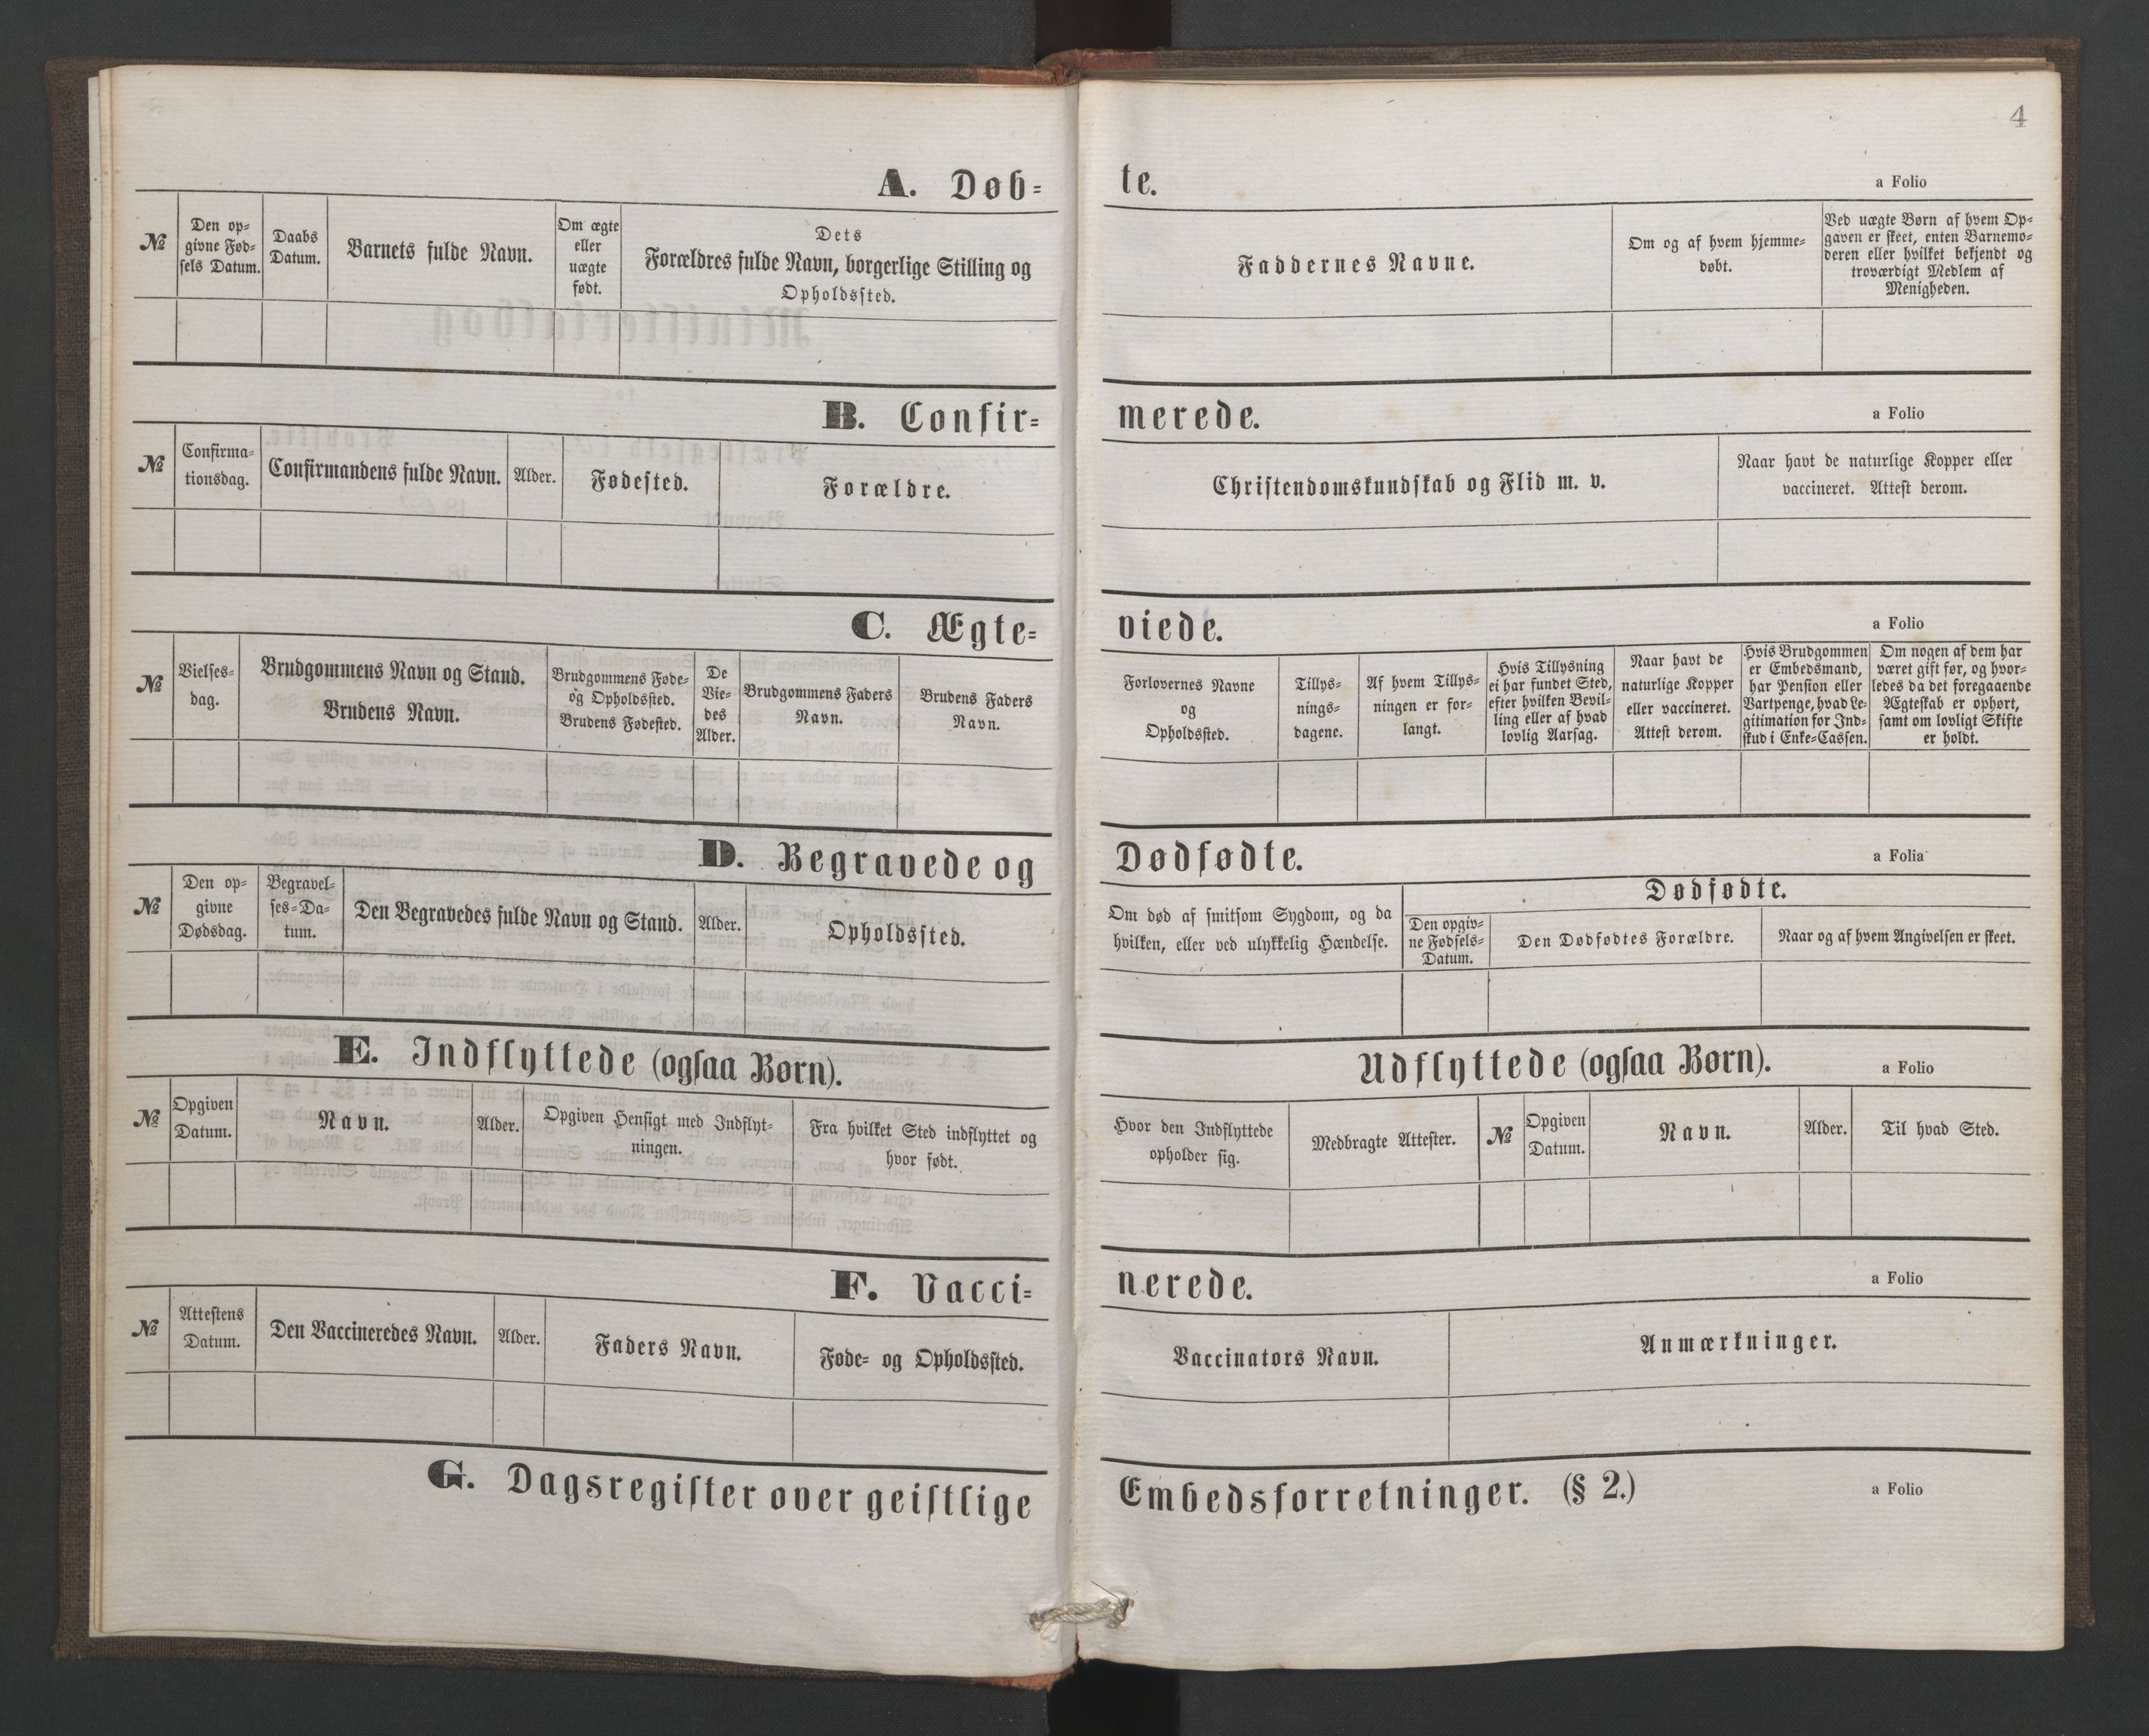 4
A. Døb-
te.
a Folio
№
Den op-
givne Fød-
sels Datum.
Daabs
Datum.
Barnets fulde Navn.
Om ægte
eller
uægte
født.
Dets
Forældres fulde Navn, borgerlige Stilling og
Opholdssted.
Faddernes Navne.
Om og af hvem hjemme-
døbt.
Ved uægte Børn af hvem Op-
gaven er skeet, enten Barnemo-
deren eller hvilket bekjendt og
troværdigt Medlem af
Menigheden.
B. Confir-
merede.
a Folio
№
Confirma-
tionsdag.
Confirmandens fulde Navn.
Alder.
Fødested.
Forældre.
Christendomskundskab og Flid m. v.
Naar havt de naturlige Kopper eller
vaccineret. Attest derom.
C. Ægte-
viede.
a Folio
№
Vielses-
dag.
Brudgommens Navn og Stand.
Brudens Navn.
Brudgommens Føde-
og Opholdssted.
Brudens Fødested.
De
Vie-
des
Alder.
Brudgommens Faders
Navn.
Brudens Faders
Navn.
Forlovernes Navne
og
Opholdssted.
Tillys-
nings-
dagene.
Af hvem Tillys-
ningen er for-
langt.
Hvis Tillysning
ei har fundet Sted,
efter hvilken Bevil-
ling eller af hvad
lovlig Aarsag.
Naar havt de
naturlige Kopper
eller vaccineret.
Attest derom.
Hvis Brudgommen
er Embedsmand,
har Pension eller
Vartpenge, hvad Le-
gitimation for Ind-
skud i Enke-Cassen.
Om nogen af dem har
været gift før, og hvor-
ledes da det foregaaende
Ægteskab er ophørt,
samt om lovligt Skifte
er holdt.
D. Begravede og
Dødfødte.
a Folia
№
Den op-
givne
Dødsdag.
Begravel-
ses-Da-
tum.
Den Begravedes fulde Navn og Stand.
Alder.
Opholdssted.
Om død af smitsom Sygdom, og da
hvilken, eller ved ulykkelig Hændelse.
Dødfødte.
Den opgiv-
ne Fødsels-
Datum.
Den Dødfødtes Forældre.
Naar og af hvem Angivelsen er skeet.
E. Indflyttede (ogsaa Børn).
Udflyttede (ogsaa Børn).
a Folio
№
Opgiven
Datum.
Navn.
Alder.
Opgiven Hensigt med Indflyt-
ningen.
Fra hvilket Sted indflyttet og
hvor født.
Hvor den Indflyttede
opholder sig.
Medbragte Attester.
№
Opgiven
Datum.
Navn.
Alder.
Til hvad Sted.
F. Vacci-
nerede.
a Folio
№
Attestens
Datum.
Den Vaccineredes Navn.
Alder.
Faders Navn.
Føde- og Opholdssted.
Vaccinators Navn.
Anmærkninger.
G. Dagsregister over geistlige
Embedsforretninger. (§ 2.)
a Folio